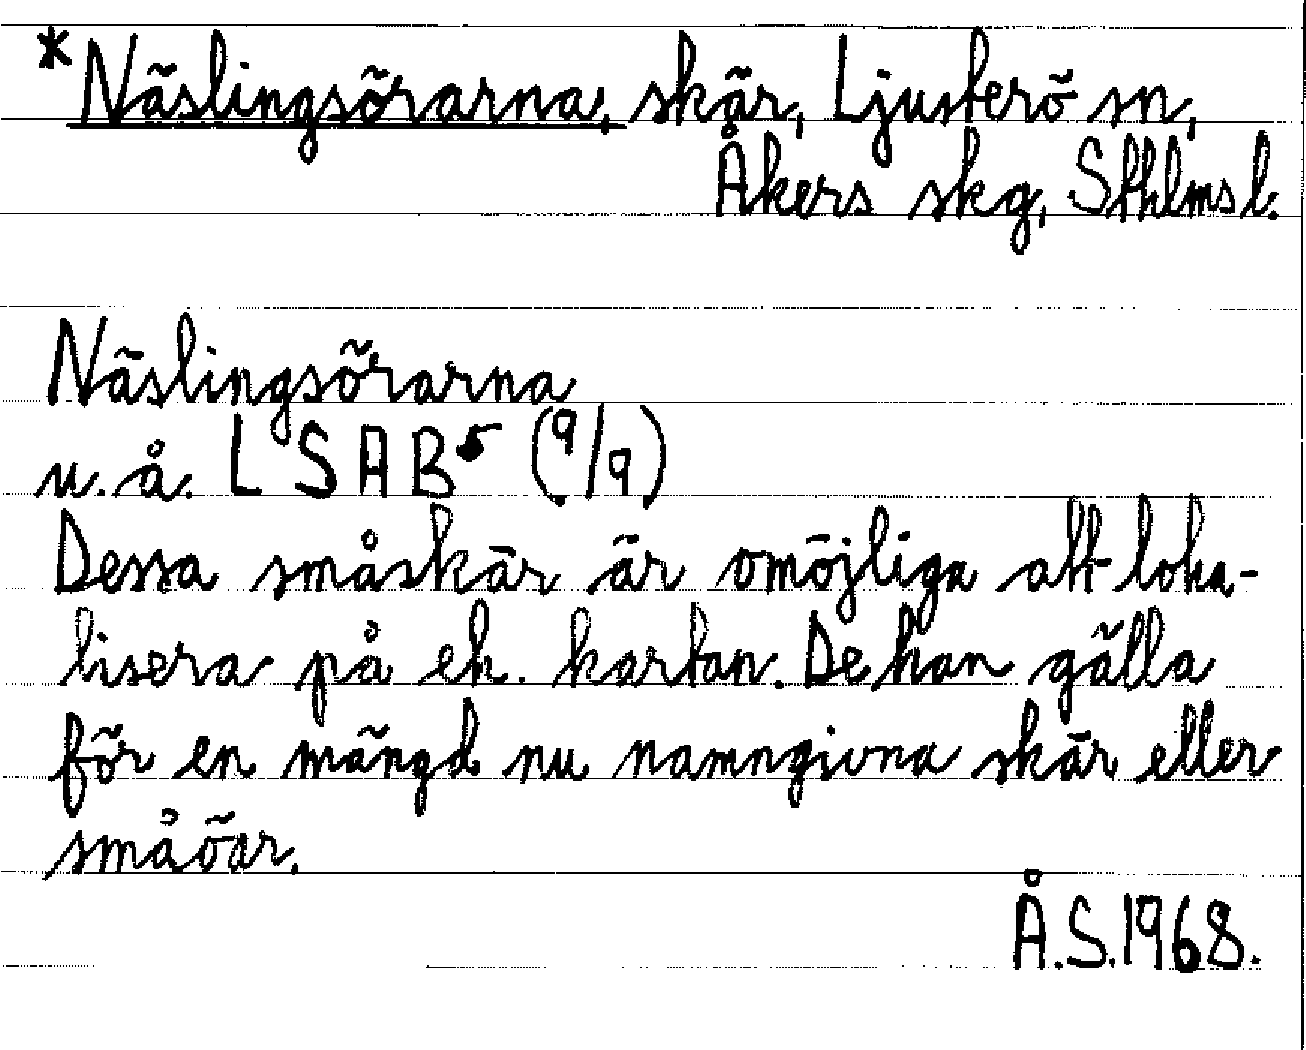 *Näslingsörarna, skär, Ljusterö sn,
Åkers skg, Sthlms l.
Näslingsörarna
u.å. LSAB5 (9/9)
Dessa småskär är omöjliga att loka-
lisera på ek. kartan. De kan gälla
för en mängd nu namngivna skär eller
småöar.
Å.S.1968.